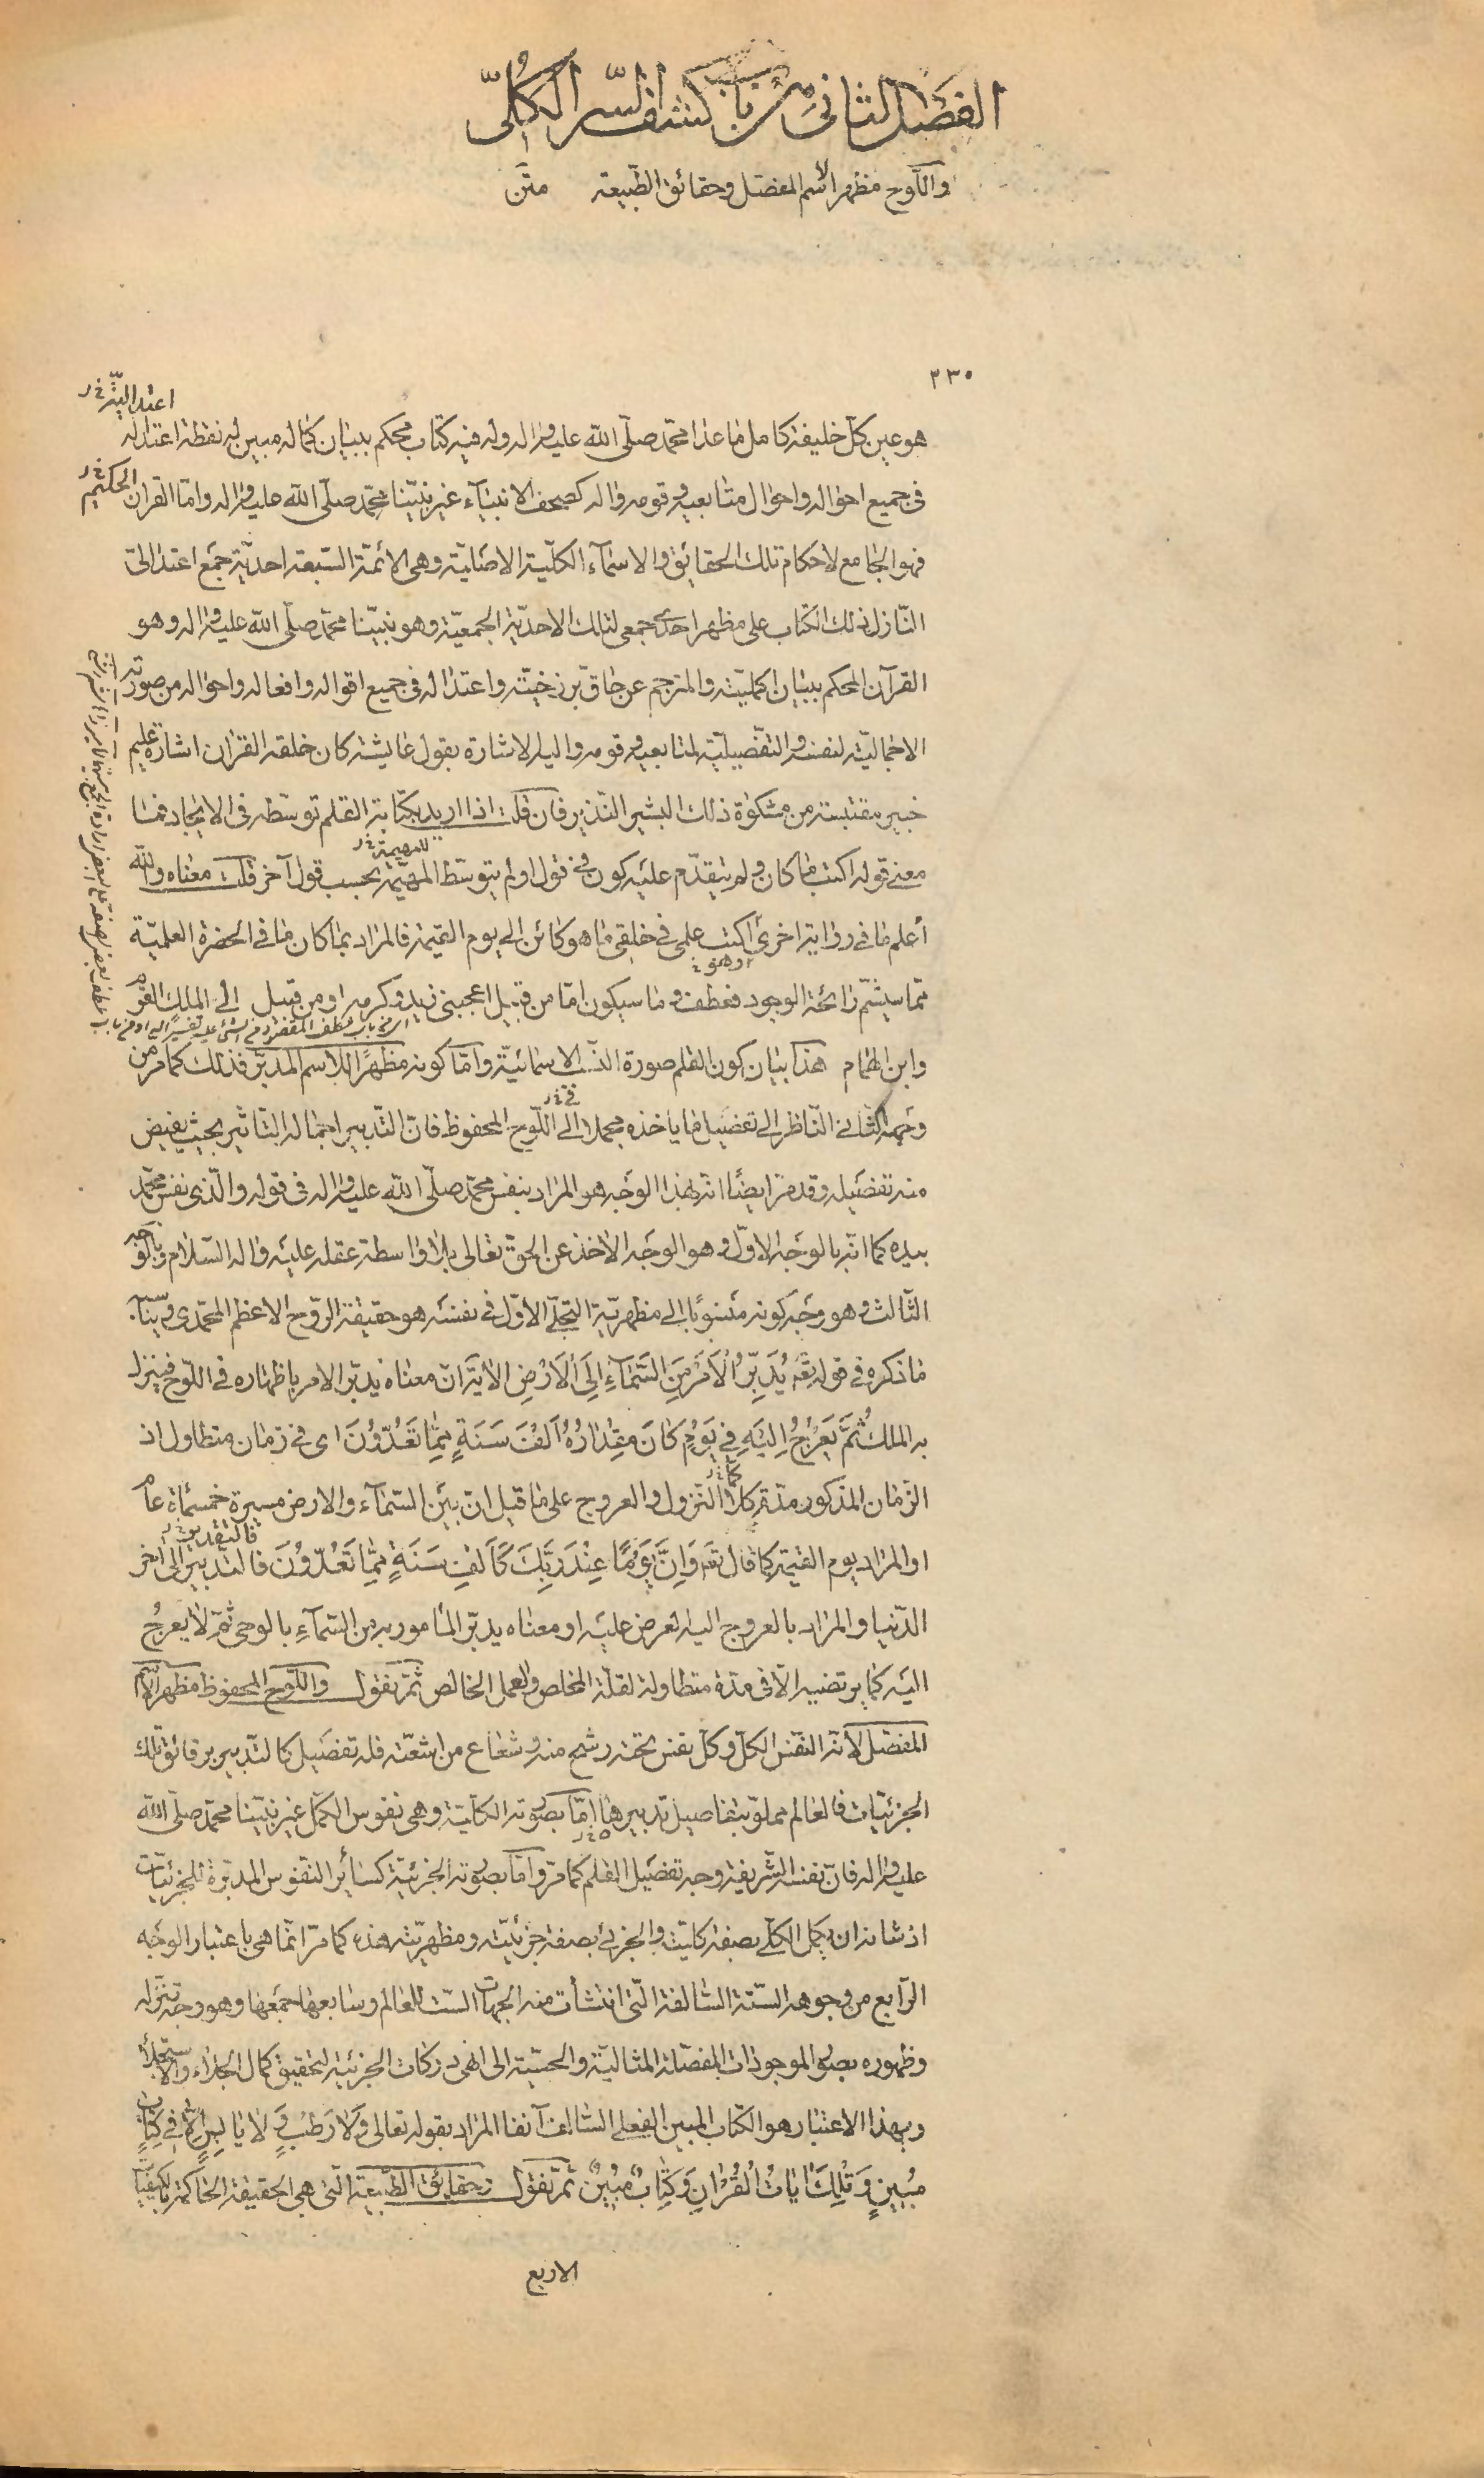 الفصل الثانی من باب کشف السّر الکُلّی
واللّوح مظهر الاسم المفصّل وحقائق الطّبیعة متن
٢٣٠
اعتدالیّته خ ر
هو عین کلّ خلیفة کامل ما عدا محمّد صلّی اللّه علیه واله وله فیه کتاب محکم ببیان کماله مبین له نقطة اعتداله
فی جمیع احواله واحوال متابعیه وقومه واله کصحف الانبیآء غیر نبیّنا محمّد صلّی اللّه علیه واله وامّا القران الحکیم
فهو الجامع لاحکام تلک الحقائق والاسمآء الکلّیة الاصلیّة وهی الائمّة السّبعة احدیّة جمع اعتدالیّ
النّازل ذلک الکتاب علی مظهر احدیّ جمعی لتلک الاحدیّة الجمعیّة وهو نبیّنا محمّد صلّی اللّه علیه واله وهو
القرآن المحکم ببیان اکملیّته والمترجم عن حاقّ برزخیّته واعتداله فی جمیع اقواله وافعاله واحواله من صورته
الاجمالیّة لنفسه والتفصیلیّة لمتابعیه وقومه والیه الاشارة بقول عایشة کان خلقه القران اشارة علیم
خبیر مقتبسة من مشکوة ذلک البشیر النّذیر فان قلت اذا ارید بکتابة القلم توسّطه فی الایجاد فما
معنی قوله اکتب ما کان ولم یتقدّم علیه کون فی قول اولم یتوسّط المهیّمة بحسب قول آخر قلت معناه واللّه
للمهیمة خ ر
أعلم ما فی روایة اخری اکتب علمی فی خلقی ما هو کائن الی یوم القیمة فالمراد بما کان ما فی الحضرة العلمیّة
ممّا سیشمّ رائحة الوجود فعطف وما سیکون امّا من قبیل اعجبنی زید وکرمه او من قبیل الی الملک القرم
وابن الهمام هذا بیان کون القلم صورة النّسب الاسمائیّة وامّا کونه مظهرًا للاسم المدبّر فذلک کما مرّ من
وجهه الثانی النّاظر الی تفصیل ما یاخذه مجملا الی اللّوح المحفوظ فانّ التّدبیر اجمال التاثیر بحیث یفیض
منه تفصیله وقد مرّ ایضًا انه بهذا الوجه هو المراد بنفس محمّد صلّی اللّه علیه واله فی قوله والّذی نفس محمّد
بیده کما انّه بالوجه الاوّل وهو الوجه الاخذ عن الحقّ تعالی بلا واسطة عقله علیه واله السّلام وبالوجه
الثّالث وهو وجه کونه منسوبًا الی مظهریّة التجلّی الاوّل فی نفسه هو حقیقة الرّوح الاعظم المحمّدی
ما ذکره فی قوله تعَ یُدَبِّرُ الْاَمْرَ مِنَ السَّمَآءِ اِلَی الْاَرْضِ الأیة انّ معناه یدبّر الامر باظهاره فی اللّوح فینزل
به الملک ثُمَّ یَعْرُجُ اِلَیْهِ فِی یَوْمٍ کَانَ مِقْدَارُهُ اَلْفَ سَنَةٍ مِمَّا تَعُدُّونَ ای فی زمان متطاول اذ
الزّمان المذکور مدّة کلا النّزول والعروج علی ما قیل انّ بین السّمآء والارض مسیرة خمسمائة عام
او المراد یوم القیمة کما قال تعَ وَاِنَّ یَوْمًا عِنْدَ رَبِّکَ کَاَلْفِ سَنَةٍ مِمَّا تَعُدُّونَ فالتدبیر الی اخر
فالتقدیر خ ر
الدّنیا والمراد بالعروج الیه العرض علیه او معناه یدبّر المامور به من السّمآء بالوحی ثمّ لا یعرجُ
الیه کما یرتضیه الّا فی مدّة متطاولة لقلّة المخلص والعمل الخالص ثمّ نقول واللّوح المحفوظ مظهر الاسم
المفصّل لانّه النّفس الکلّ وکلّ نفس تحته رشح منه وشعاع من اشعّته فله تفصیل کالتّدبیر برقائق تلک
الجزئیّات فالعالم مملوّ بتفاصیل تدبیرها امّا بصورته الکلّیة وهی نفوس الکمّل غیر نبیّنا محمّد صلّی اللّه
علیه واله فانّ نفسه الشّریفة وجه تفصیل القلم کما مرّ وامّا بصورته الجزئیّة کسائر النّفوس المدبّرة للجزئیّات
اذ شانه ان یکمل الکلّی بصفة کلیّته والجزئی بصفة جزئیّته ومظهریّته هذه کما مرّ انّما هی باعتبار الوجه
الرّابع من وجوهه السّتّة السّالفة الّتی انتشأت منه الجهات السّت للعالم وسابعها جمعها وهو وجه تنزّله
وظهوره بصور الموجودات المفصّلة المثالیّة والحسّیة الی انهی درکات الجزئیّة لتحقیق کمال الجلاء والاستجلاء
وبهذا الاعتبار هو الکتاب المبین الفعلی السّالف آنفا المراد بقوله تعالی وَلا رَطْبٍ وَلا یَابِسٍ اِلَّا فِی کِتَابٍ
مُبِینٍ وَتِلْکَ ایَاتُ الْقُرْانِ وَکِتَابٍ مُبِینٍ ثمّ نقول وحقایق الطّبیعة الّتی هی الحقیقة الحاکمة بالکیفیّات
الاربع